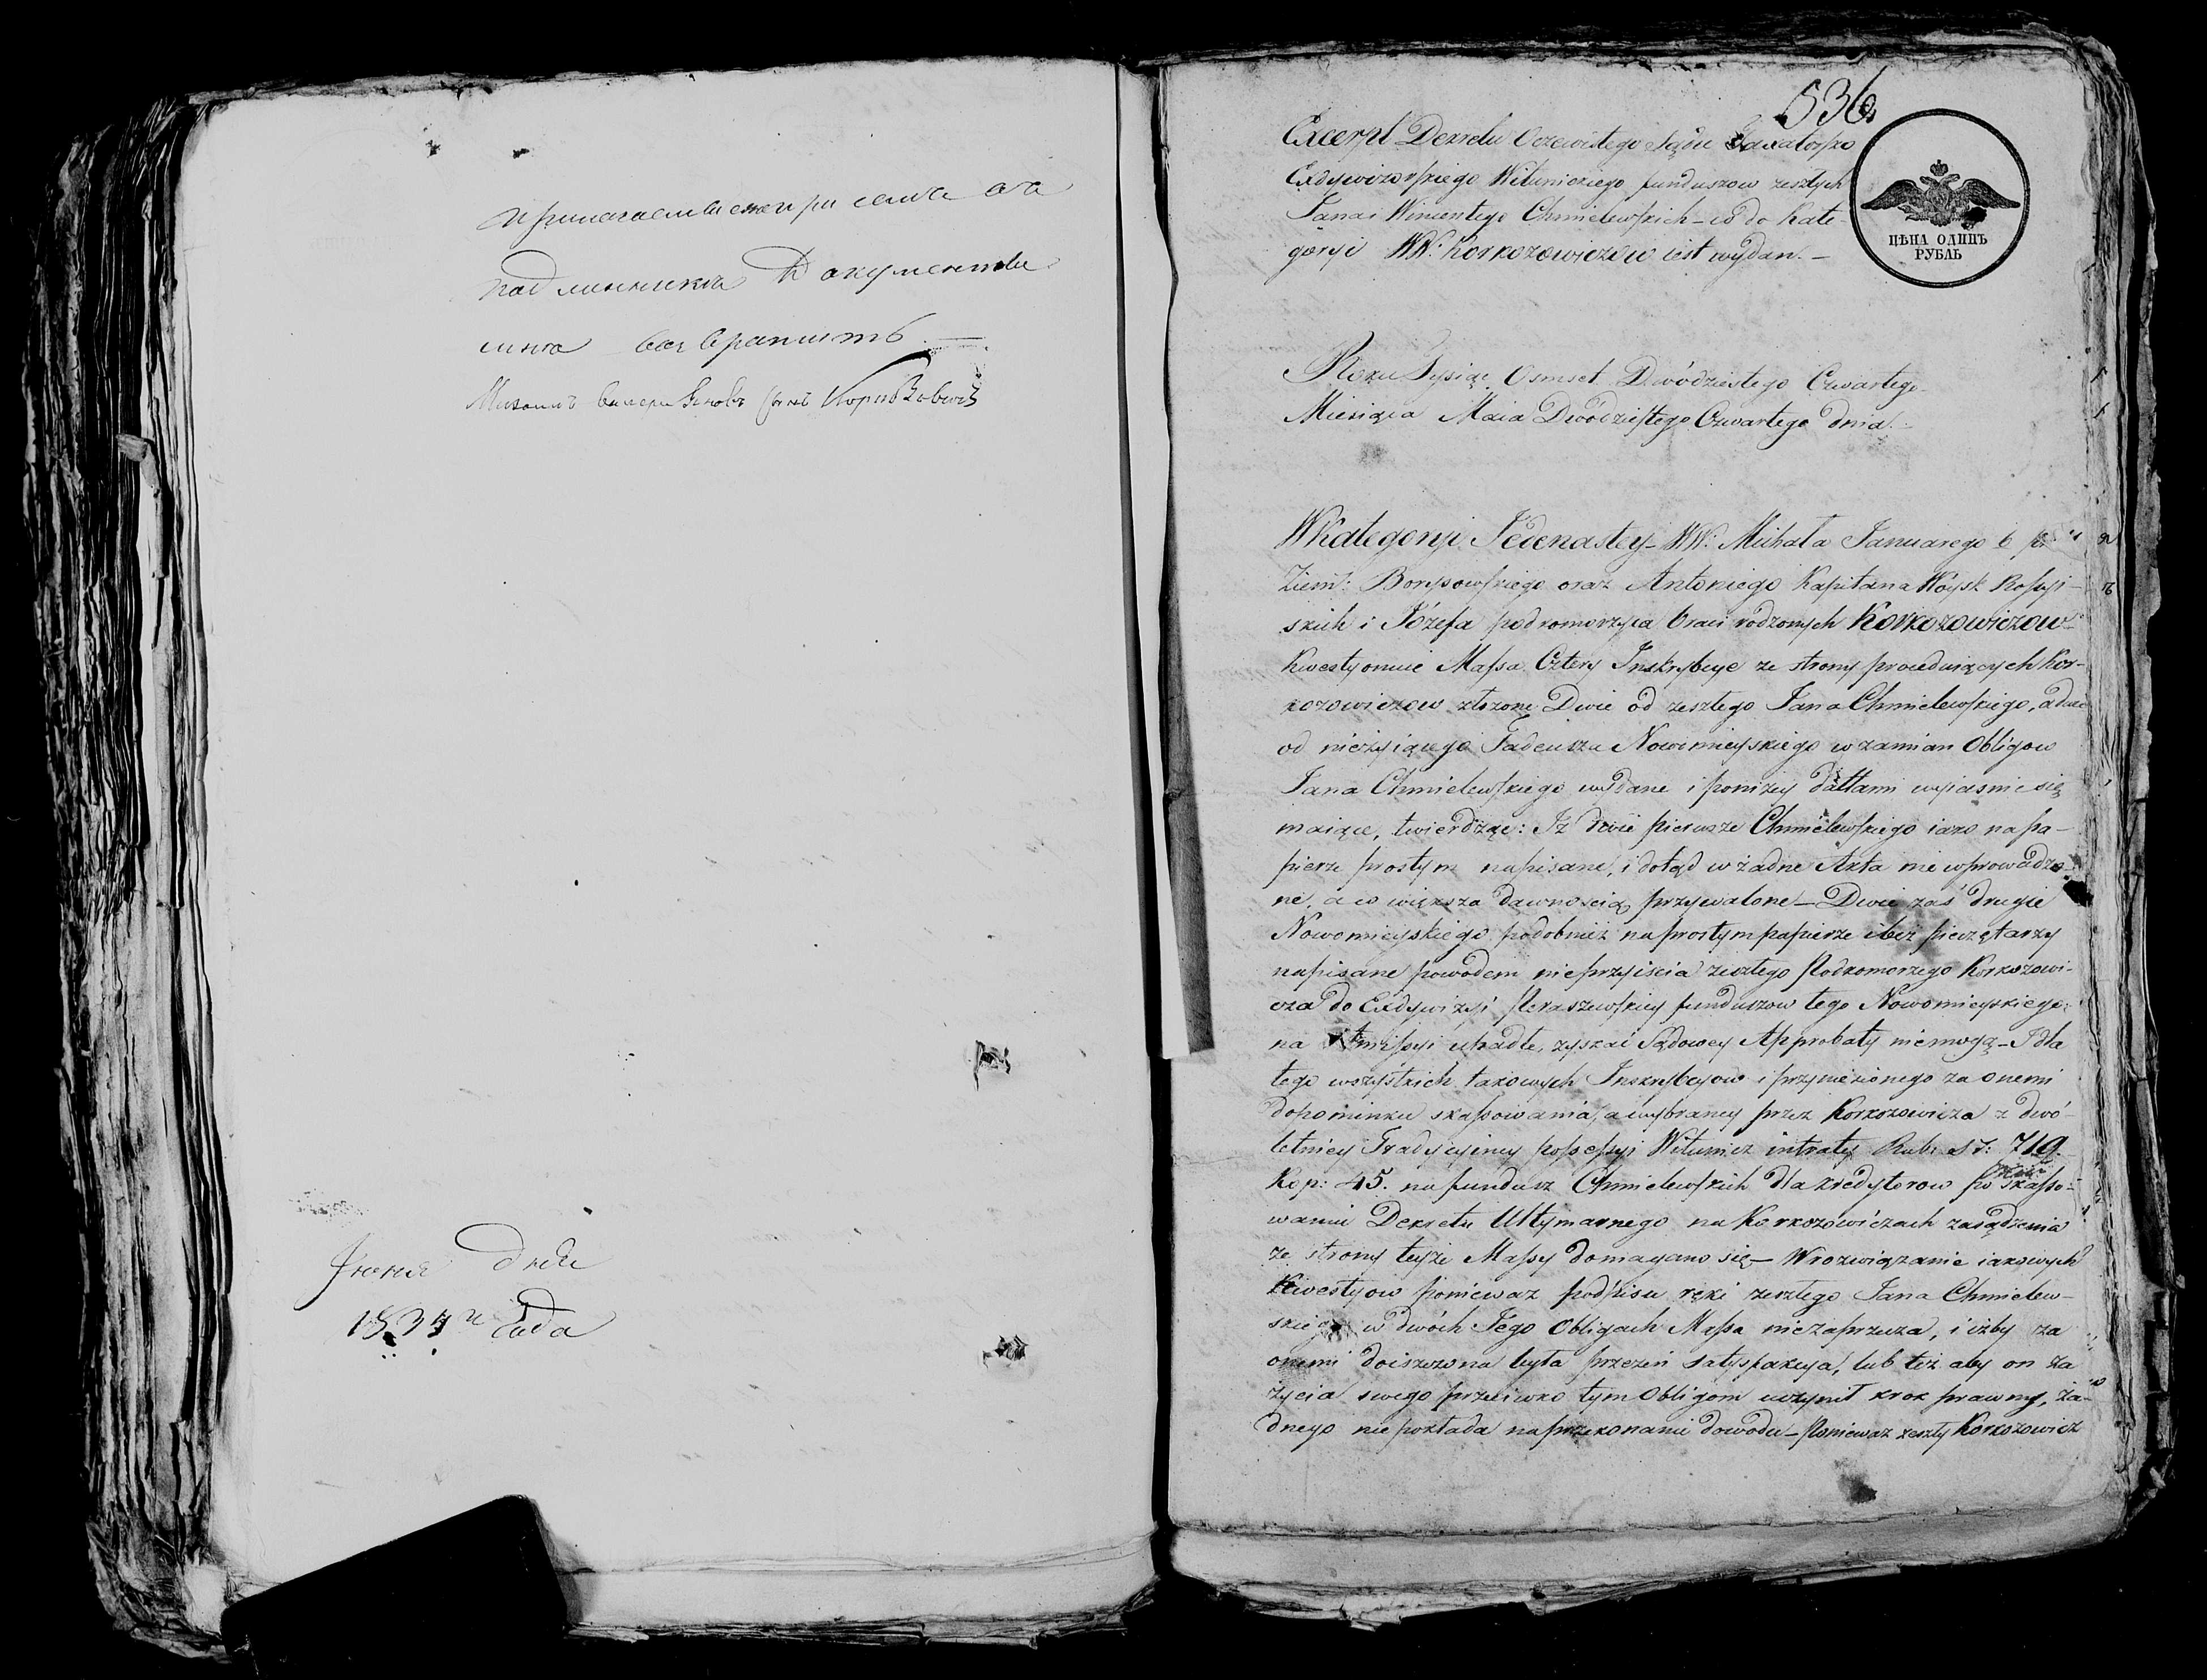 прилагаемые при семъ
подлинники Документы
мнѣ возвратить —
Июня Дня
1837 Года
536
Excerpt Dekretu Oczewistego Sądu Taxatorsko
Exdywizorskiego Witunickiego funduszow zeszłych
Jana i Wincentego Chmielewskich – co do kate-
goryi WW. Korkozowiczow iest wydan. –
ЦѢНА ОДИНЪ
РУБЛЬ
Roku Tysiąc Osmset Dwódziestego Czwartego
Miesiąca Maia Dwódziestego Czwartego dnia.
W Kategoryi Jedenastey – WW. Michała Januarego b
Ziem: Borysowskiego oraz Antoniego Kapitana Wóysk Rossyi-
skich i Józefa podkomorzyca braci rodzonych Korkozowiczow
kwestyonuie Massa Cztery Inskrybcye ze strony proceduiących Kor-
kozowiczow złożone Dwie od zeszłego Jana Chmielewskiego, a dwie
od nieżyiącego Tadeusza Nowomieyskiego w zamian Obligow
Jana Chmielewskiego wydane i poniżey dattami wyiasnić się
maiące, twierdząc: Iż dwie pierwsze Chmielewskiego iako na pa-
pierze prostym napisane, i dotąd w żadne Akta nie wprowadzo-
ne, a co większa dawnością przywalone – Dwie zaś drugie
Nowomieyskiego podobnież na prostym papierze i bez pieczętarzy
napisane powodem nieprzyiścia zeszłego Podkomorzego Korkozowi-
cza do Exdywizyi funduszow tego Nowomieyskiego
na Ammissyi upadłe, zyskać Sądowey Approbaty niemogą – I dla
tego wszystkich takowych Inskrybcyow i przyniesionego za onemi
dopominku skassowania, a wybraney przez Korkozowicza z dwó-
letniey Tradycyiney possessyi Witunicz intraty Rub: sr: 719.
Kop: 45. na fundusz Chmielewskich dla kredytorow po skasso-
waniu Dekretu Ultymarnego na Korkozowiczach zasądzenia
ze strony teyże Massy domagano się – W rozwiązanie iakowych
kwestyow ponieważ podpisu ręki zeszłego Jana Chmielew-
skiego w dwóch Jego Obligach Massa niezaprzecza, i iżby za
onemi doiszczona była przezeń satysfakcya, lub też aby on za
życia swego przeciwko tym Obligom uczynił krok prawny, ża-
dnego niepokłada na przekonanie dowodu – Ponieważ zeszły Korkozowicz